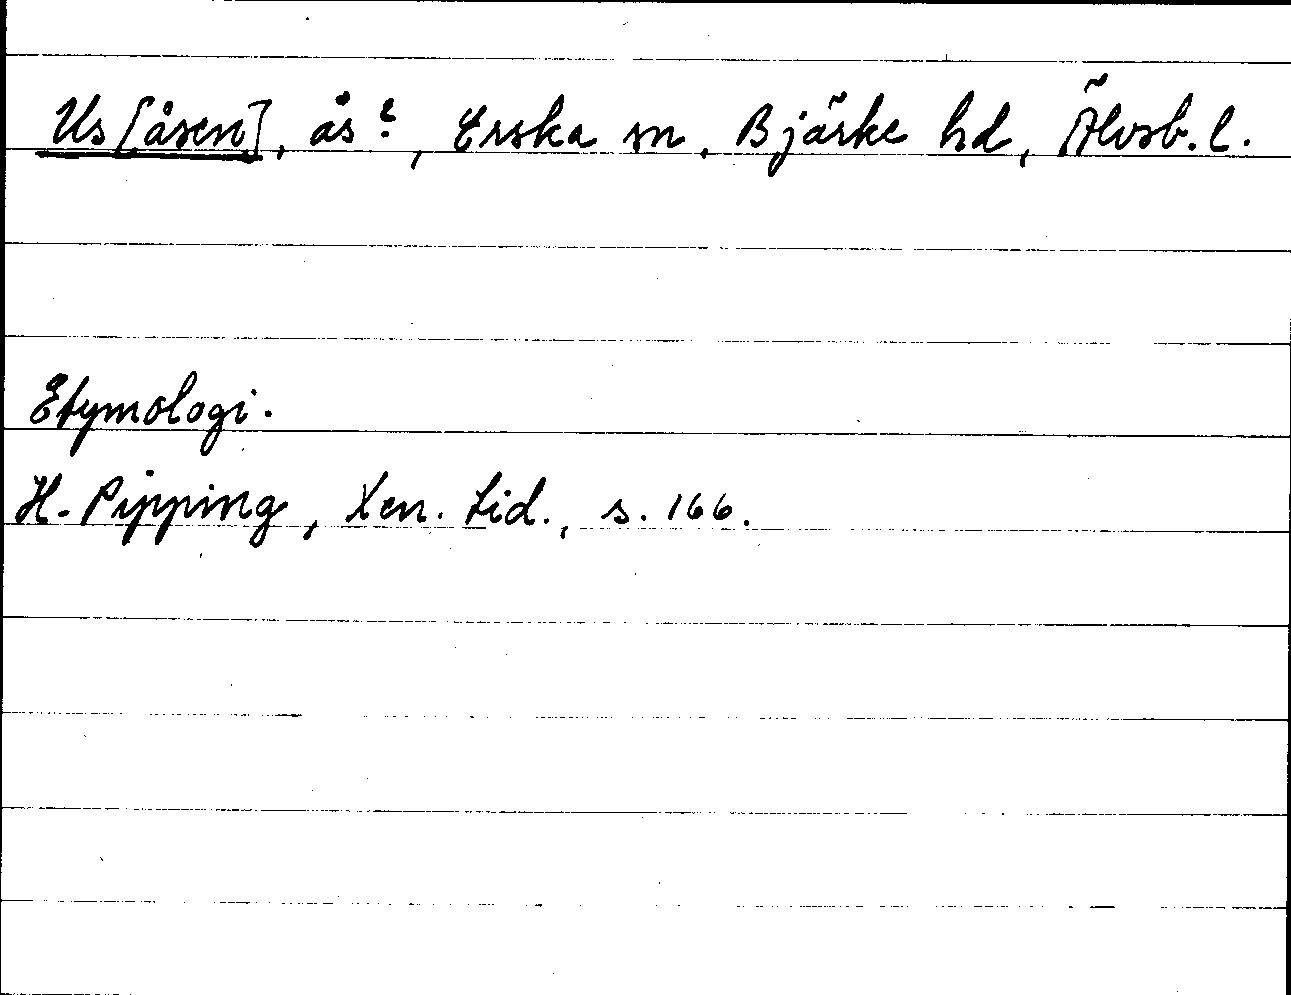 Us[åsen], ås?, Erska sn, Bjärke hd, Älvsb. l.
Etymologi.
H. Pipping, Xen. Lid., s. 166.